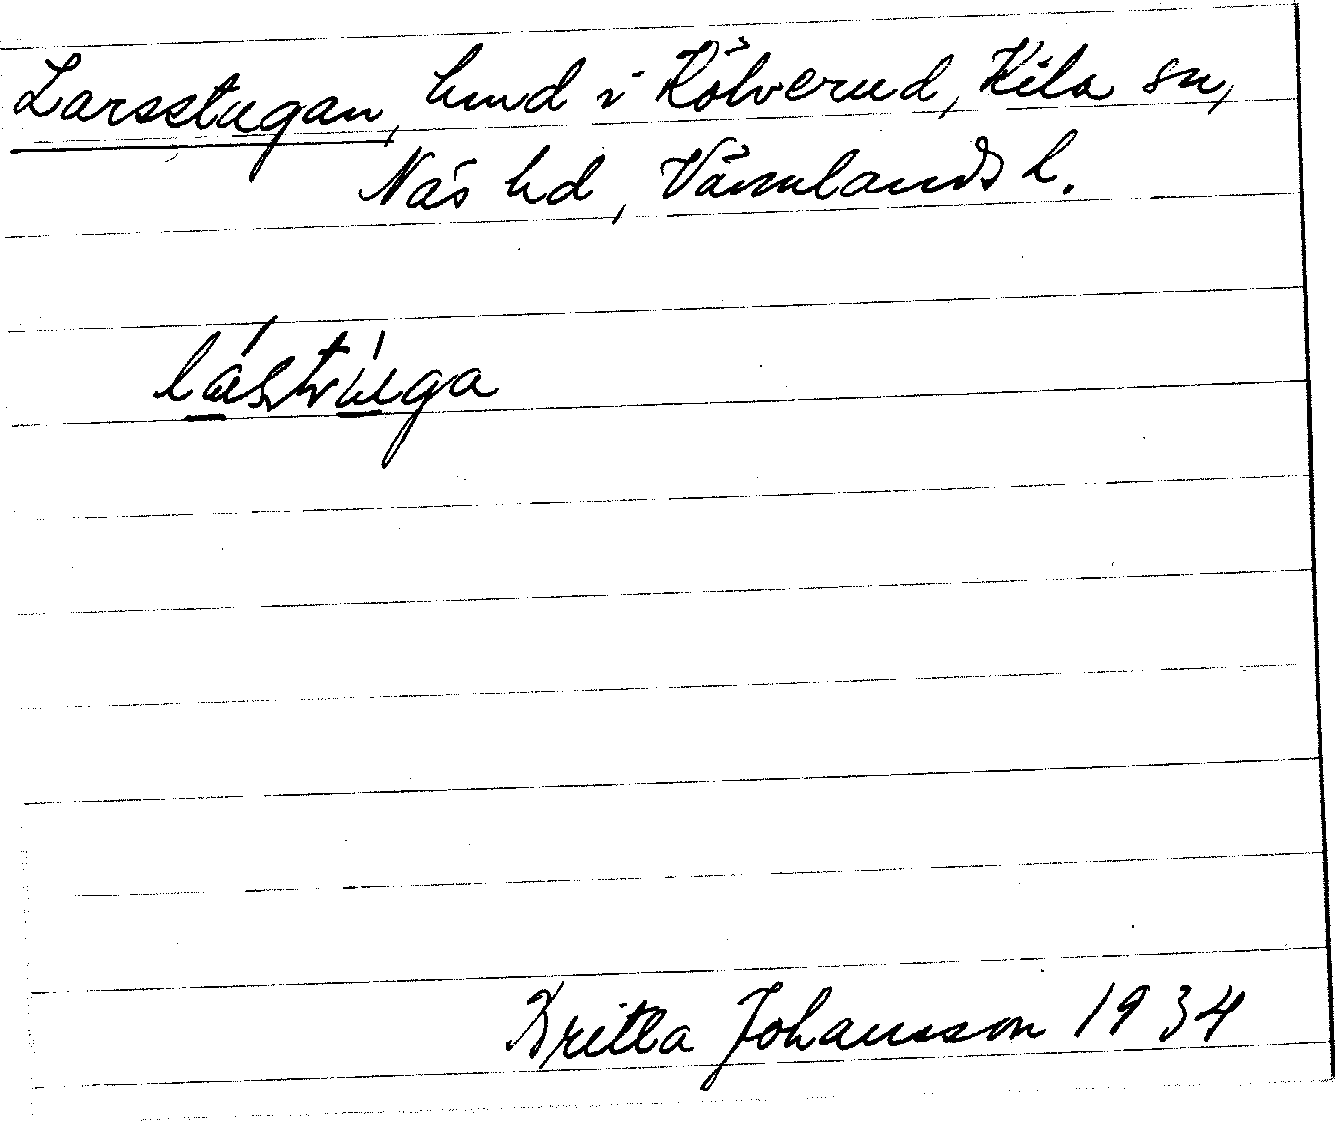 Larsstugan, hmd i Kölverud, Kila sn,
Näs hd, Värmlands l.
lástùga
Britta Johansson 1934